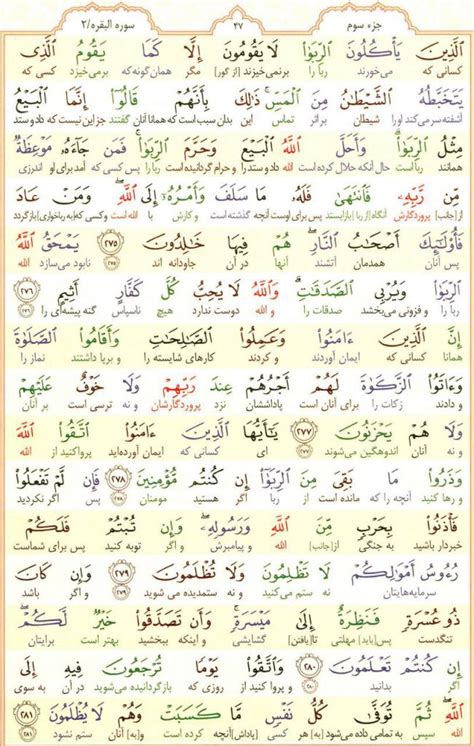 جزء سوم ۴۷ سوره البقره/۲
ٱلَّذِينَ يَأۡكُلُونَ ٱلرِّبَوٰاْ لَا يَقُومُونَ إِلَّا كَمَا يَقُومُ ٱلَّذِي
کسانی که می‌خورند ربا را برنمی‌خیزند [از گور] مگر همان‌گونه که برمی‌خیزد کسی که
يَتَخَبَّطُهُ ٱلشَّيۡطَٰنُ مِنَ ٱلۡمَسِّۚ ذَٰلِكَ بِأَنَّهُمۡ قَالُوٓاْ إِنَّمَا ٱلۡبَيۡعُ
آشفته سر می‌کند او را شیطان بر اثر تماس این بدان سبب است که همانا آنان گفتند جز این نیست که داد و ستد
مِثۡلُ ٱلرِّبَوٰاْۗ وَأَحَلَّ ٱللَّهُ ٱلۡبَيۡعَ وَحَرَّمَ ٱلرِّبَوٰاْۚ فَمَن جَآءَهُۥ مَوۡعِظَةٞ
مانند ربا است حال آنکه حلال کرده است الله داد و ستد را و حرام گردانیده است ربا را پس کسی که آمد برای او اندرزی
مِّن رَّبِّهِۦ فَٱنتَهَىٰ فَلَهُۥ مَا سَلَفَ وَأَمۡرُهُۥٓ إِلَى ٱللَّهِۖ وَمَنۡ عَادَ
از [جانب] پروردگارش آنگاه [از ربا] بازایستد پس برای اوست آنچه گذشته است و کارش با الله است و کسی که [به رباخواری] بازگردد
فَأُوْلَٰٓئِكَ أَصۡحَٰبُ ٱلنَّارِۖ هُمۡ فِيهَا خَٰلِدُونَ ۲۷۵ يَمۡحَقُ ٱللَّهُ
پس آنان همدمان آتشند آنها در آن جاودانه اند ۲۷۵ نابود می‌سازد الله
ٱلرِّبَوٰاْ وَيُرۡبِي ٱلصَّدَقَٰتِۗ وَٱللَّهُ لَا يُحِبُّ كُلَّ كَفَّارٍ أَثِيمٍ ۲۷۶
ربا را و فزونی می‌بخشد صدقات را و الله دوست ندارد هیچ ناسپاس گنه پیشه‌ای را ۲۷۶
إِنَّ ٱلَّذِينَ ءَامَنُواْ وَعَمِلُواْ ٱلصَّٰلِحَٰتِ وَأَقَامُواْ ٱلصَّلَوٰةَ
همانا کسانی که ایمان آوردند و کردند کارهای شایسته را و برپا داشتند نماز را
وَءَاتَوُاْ ٱلزَّكَوٰةَ لَهُمۡ أَجۡرُهُمۡ عِندَ رَبِّهِمۡ وَلَا خَوۡفٌ عَلَيۡهِمۡ
و دادند زکات را برای آنان است پاداششان نزد پروردگارشان و نه ترسی است بر آنان
وَلَا هُمۡ يَحۡزَنُونَ ۲۷۷ يَٰٓأَيُّهَا ٱلَّذِينَ ءَامَنُواْ ٱتَّقُواْ ٱللَّهَ
و نه آنان اندوهگین می‌شوند ۲۷۷ ای کسانی که ایمان آورده‌اید پروا کنید از الله
وَذَرُواْ مَا بَقِيَ مِنَ ٱلرِّبَوٰٓاْ إِن كُنتُم مُّؤۡمِنِينَ ۲۷۸ فَإِن لَّمۡ تَفۡعَلُواْ
و رها کنید آنچه را که مانده است از ربا اگر هستید مومنان ۲۷۸ پس اگر نکردید
فَأۡذَنُواْ بِحَرۡبٖ مِّنَ ٱللَّهِ وَرَسُولِهِۦۖ وَإِن تُبۡتُمۡ فَلَكُمۡ
خبردار باشید به جنگی از [جانب] الله و پیامبرش و اگر توبه کنید پس برای شماست
رُءُوسُ أَمۡوَٰلِكُمۡ لَا تَظۡلِمُونَ وَلَا تُظۡلَمُونَ ۲۷۹ وَإِن كَانَ
سرمایه‌هایتان نه ستم می‌کنید و نه ستمدیده می شوید ۲۷۹ و اگر باشد
ذُو عُسۡرَةٖ فَنَظِرَةٌ إِلَىٰ مَيۡسَرَةٖۚ وَأَن تَصَدَّقُواْ خَيۡرٞ لَّكُمۡ
تنگدست پس [باید] مهلتی تا [یافتن] گشایشی و اینکه ببخشید بهتر است برایتان
إِن كُنتُمۡ تَعۡلَمُونَ ۲۸۰ وَٱتَّقُواْ يَوۡمٗا تُرۡجَعُونَ فِيهِ إِلَى
اگر بدانید ۲۸۰ و پروا کنید از روزی که بازگردانیده می‌شوید در آن به سوی
ٱللَّهِۖ ثُمَّ تُوَفَّىٰ كُلُّ نَفۡسٖ مَّا كَسَبَتۡ وَهُمۡ لَا يُظۡلَمُونَ ۲۸۱
الله سپس به تمامی داده می‌شود [به] هر کسی [پاداش] آنچه کرده است و آنان ستم نشود ۲۸۱